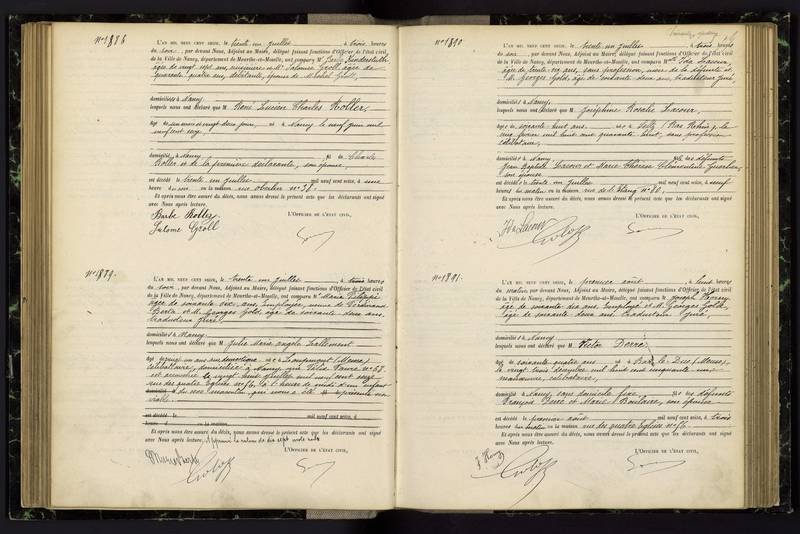 N° 1888
L'AN MIL NEUF CENT SEIZE, le trente un juillet à trois heures
du soir, par devant Nous, Adjoint au Maire, délégué faisant fonctions d'Officier de l'état civil
de la Ville de Nancy, département de Meurthe-et-Moselle, ont comparu M
âgée de vingt sept ans, et Salomé Groll, âgée de
quarante quatre ans, débitante, épouse de Michel Groll,
domiciliés à Nancy
lesquels nous ont déclaré que M René Lucien Charles Koller,
âgé de un mois et vingt deux jours, né à Nancy le neuf juin mil
neuf cent seize,
domicilié à Nancy, fils de Charles
Koller et de la première déclarante, son épouse,
est décédé le trente un juillet mil neuf cent seize, à une
heure du soir en la maison rue n° 38.
Et après nous être assuré du décès, nous avons dressé le présent acte que les déclarants ont signé
avec Nous après lecture.
L'OFFICIER DE L'ÉTAT CIVIL,
Barbe Koller
Salome Groll
N° 1889.
L'AN MIL NEUF CENT SEIZE, le trente un juillet à trois heures
du soir, par devant Nous, Adjoint au Maire, délégué faisant fonctions d'Officier de l'état civil
de la Ville de Nancy, département de Meurthe-et-Moselle, ont comparu M Maria
âgée de soixante ans, employée, veuve de Ferdinand
et M. Georges Gold, âgé de soixante deux ans,
traducteur juré,
domiciliés à Nancy
lesquels nous ont déclaré que M Julie Maria Angèle Lallement
âgé de vingt un ans domestique né à (Meuse)
célibataire, domiciliée à Nancy rue Félix Faure n° 57.
est accouchée le vingt huit juillet mil neuf cent seize
rue des quatre Eglises n° à heure de midi d'un enfant
du sexe masculin, qui nous a été présenté sans
vie.
est décédé le mil neuf cent seize, à
heure d en la maison
Et après nous être assuré du décès, nous avons dressé le présent acte que les déclarants ont signé
avec Nous après lecture.
L'OFFICIER DE L'ÉTAT CIVIL,
N° 1890
L'AN MIL NEUF CENT SEIZE, le trente un juillet à trois heures
du soir, par devant Nous, Adjoint au Maire, délégué faisant fonctions d'Officier de l'état civil
de la Ville de Nancy, département de Meurthe-et-Moselle, ont comparu M Ida Lacour,
âgée de ans, sans profession, de la défunte et
M. Georges Gold, âgé de soixante deux ans, traducteur juré
domiciliés à Nancy,
lesquels nous ont déclaré que M Joséphine Rosalie Lacour,
âgée de soixante huit ans, née à (Bas Rhin), le
février mil huit cent quarante huit, sans profession
célibataire,
domiciliée à Nancy, fille des défunts
Jean Baptiste Lacour et Marie Thérèse Clémentine
son épouse
est décédée le trente un juillet mil neuf cent seize, à neuf
heures du matin en la maison rue de l'Etang n° 80.
Et après nous être assuré du décès, nous avons dressé le présent acte que les déclarants ont signé
avec Nous après lecture.
L'OFFICIER DE L'ÉTAT CIVIL,
Ida Lacour
N° 1891.
L'AN MIL NEUF CENT SEIZE, le premier août à huit heures
du matin, par devant Nous, Adjoint au Maire, délégué faisant fonctions d'Officier de l'état civil
de la Ville de Nancy, département de Meurthe-et-Moselle, ont comparu M Joseph
âgé de soixante dix ans, employé et M. Georges Gold,
âgé de soixante deux ans, traducteur juré,
domiciliés à Nancy
lesquels nous ont déclaré que M Victor Dorré
âgé de soixante quatre ans né à Bar le Duc (Meuse),
le vingt trois décembre mil huit cent cinquante un,
manœuvre, célibataire,
domicilié à Nancy, sans domicile fixe, fils des défunts
François Dorré et Marie Boulaire, son épouse
est décédé le premier août mil neuf cent seize, à trois
heures du matin en la maison rue des quatre Eglises n°
Et après nous être assuré du décès, nous avons dressé le présent acte que les déclarants ont signé
avec Nous après lecture.
L'OFFICIER DE L'ÉTAT CIVIL,